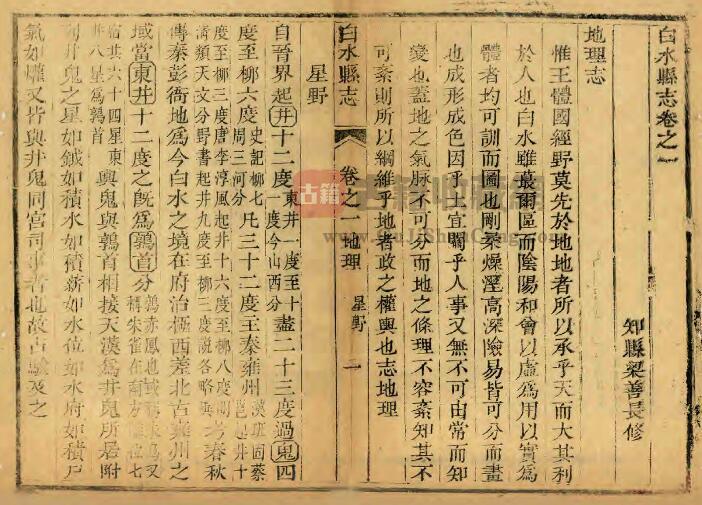 白水縣志卷之一
知縣梁善長修
地理志
惟王體國經野莫先於地地者所以承乎天而大其利
於人也白水雖蕞爾區而陰陽和會以虛為用以實為
體者均可訓而圖也剛柔燥溼高深險易皆可分而畫
也成形成色因乎土宜關乎人事又無不可由常而知
變也蓋地之氣脉不可分而地之條理不容紊知其不
可紊則所以綱維乎地者政之權輿也志地理
白水縣志
卷之一 地理
星野
一
星野
自晉界起井十二度東井一度至十一度今山西分盡二十三度過鬼四
度至柳六度史記柳七周三河分凡三十二度王秦雍州漢班固蔡邕起井十
度至柳三度唐李淳風起井十六度至柳八度清類天文分野書起井九度至柳三度說各略考春秋
傳秦彭衙地為今白水之境在府治極西差北古雍州之
域當東井十二度之旣為鶉首分鶉赤鳳也稱朱雀在南方七
宿共六十四星東井八星為鶉首與鬼與鶉首相接天漢為井鬼所居附
井鬼之星如鉞如積水如積薪如水位如水府如積尸
氣如爟又皆與井鬼同宮司事者也故占驗及之